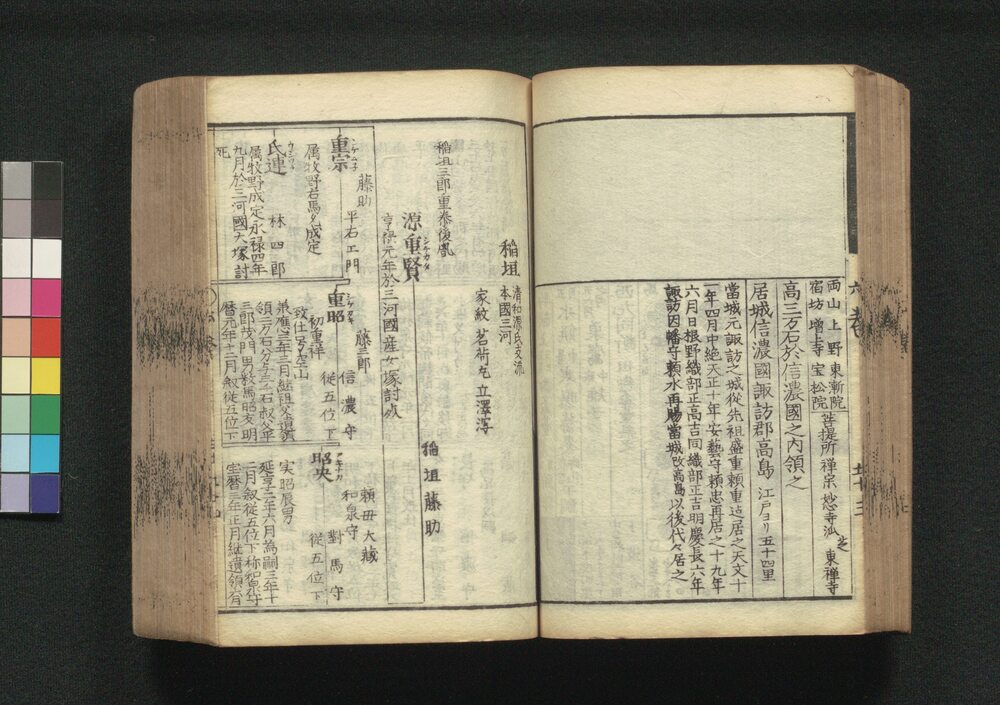 両山 上野 東漸院 菩提所 禅宗 妙寺派 東禅寺
宿坊 増寺 宝松院
高三万石於信濃國之内領之
居城信濃國諏訪郡高島 江戸ヨリ五十四里
當城元諏訪之城從先祖盛重頼重迠居之天文十
一年四月中絶天正十年安藝守頼忠再居之十九年
六月日根野織部正高吉同織部正吉明慶長六年
諏訪因幡守頼水再賜當城改高島以後代々居之
稲垣
清和源氏支流
本國三河
家紋 茗荷丸 立澤瀉
稲垣三郎重泰後胤
源重賢
シゲカタ
享禄元年於三河國産女塚討死
稲垣藤助
藤助
平右エ門
重宗
属牧野右馬允成定
林四郎
氏連
属牧野成定永禄四年
九月於三河國大塚討
死
藤三郎
信濃守
従五位下
重昭
初重祥
致仕号空山
承應三年三月継祖父遺
領二万石分与三千石叔父平
三郎茂門男教馬昭友明
暦元年十二月叙従五位下
頼母 大蔵
和泉守 對馬守
従五位下
昭央
アキナカ
実昭辰男
延享二年六月為嗣三年十
二月叙従五位下称和泉守
宝暦三年正月継遺領有